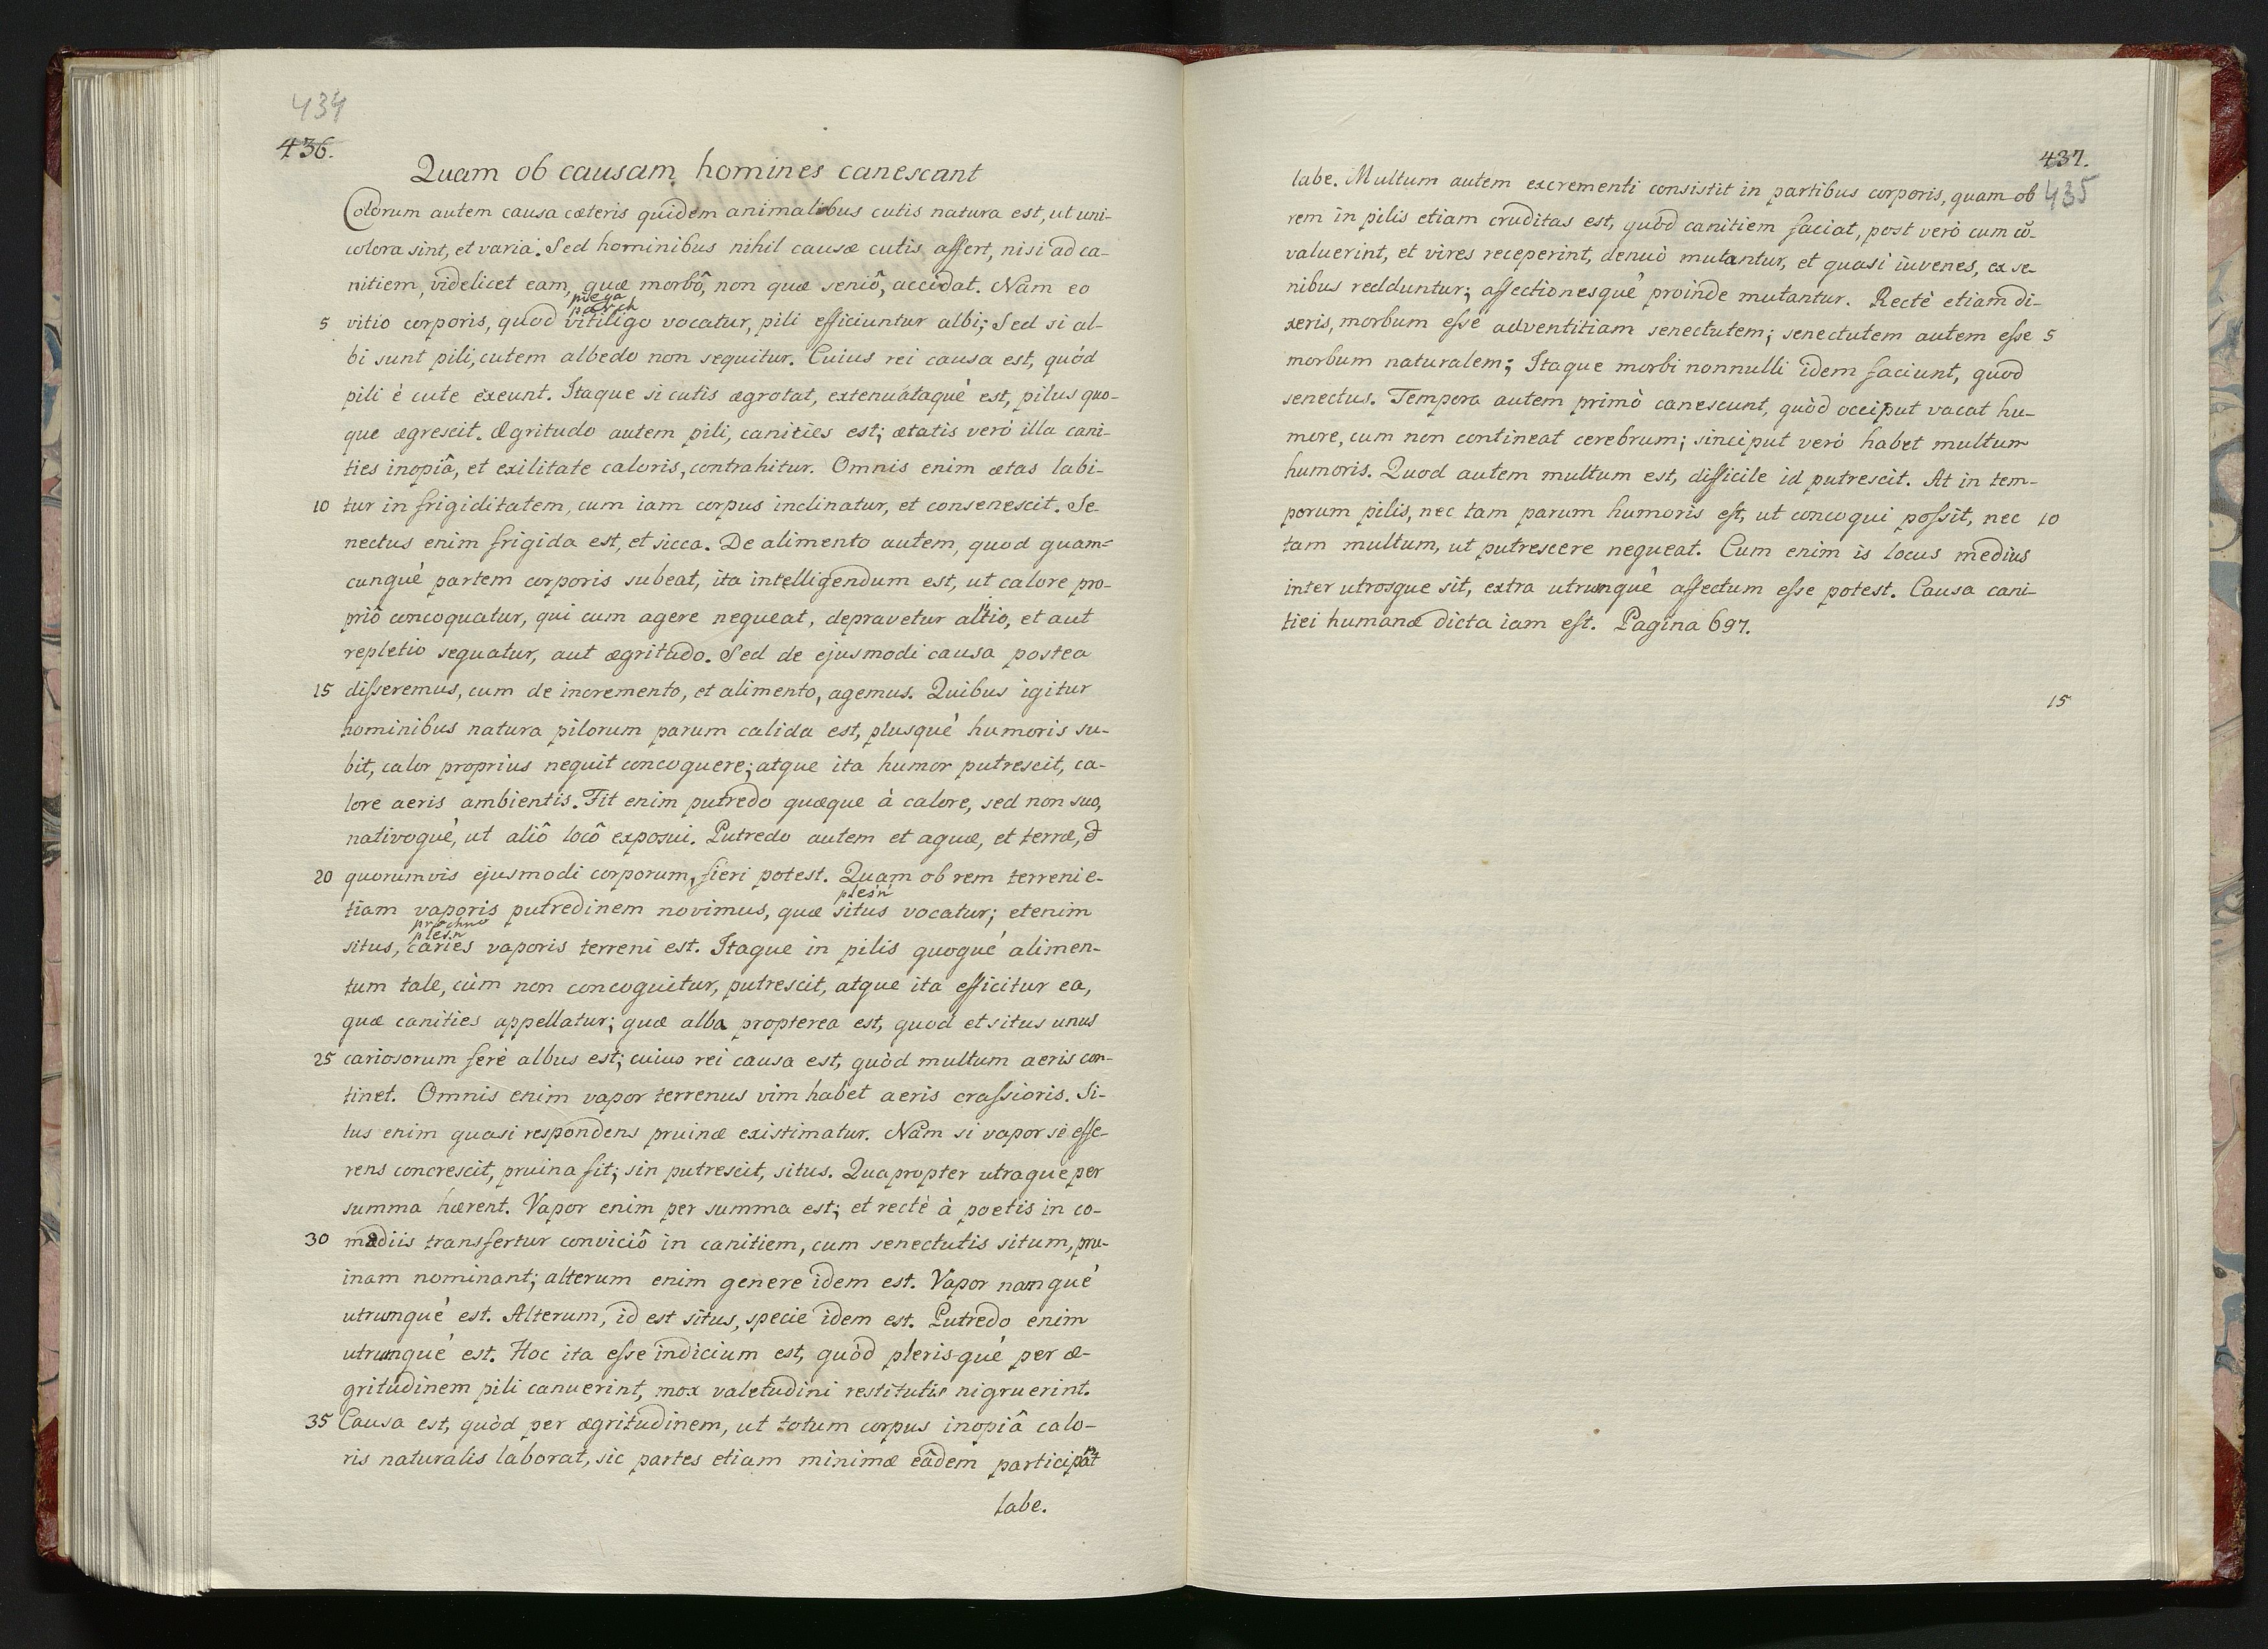 434
436.
Quam ob causam homines canescant
Colorum autem causa cæteris quidem animalibus cutis natura est, ut uni-
colora sint, et varia. Sed hominibus nihil causæ cutis affert, nisi ad ca-
nitiem, videlicet eam, quæ morbô, non quæ seniô, accidat. Nam eo
piega
parch
5 vitio corporis, quod vitiligo vocatur, pili efficiuntur albi; Sed si al-
bi sunt pili, cutem albedo non sequitur. Cuius rei causa est, quòd
pili è cute exeunt. Itaque si cutis ægrotat, extenuátaquè est, pilus quo-
que ægrescit. Ægritudo autem pili, canities est; ætatis verò illa cani-
ties inopiâ, et exilitate caloris, contrahitur. Omnis enim ætas labi-
10 tur in frigiditatem, cum iam corpus inclinatur, et consenescit. Se-
nectus enim frigida est, et sicca. De alimento autem, quod quam-
cunquè partem corporis subeat, ita intelligendum est, ut calore pro-
priô concoquatur, qui cum agere nequeat, depravetur altio, et aut
repletio sequatur, aut ægritudo. Sed de ejusmodi causa postea
15 disseremus, cum de incremento, et alimento, agemus. Quibus igitur
hominibus natura pilorum parum calida est, plusquè humoris su-
bit, calor proprius nequit concoquere; atque ita humor putrescit, ca-
lore aeris ambientis. Fit enim putredo quæque à calore, sed non suo,
nativoquè, ut aliô locô exposui. Putredo autem et aquæ, et terræ, et
20 quorumvis ejusmodi corporum, fieri potest. Quam ob rem terreni e-
pleśń
tiam vaporis putredinem novimus, quæ situs vocatur; etenim
próchno
pleśń
situs, caries vaporis terreni est. Itaque in pilis quoquè alimen-
tum tale, cùm non concoquitur, putrescit, atque ita efficitur ea,
quæ canities appellatur; quæ alba propterea est, quod et situs unus
25 cariosorum ferè albus est; cuius rei causa est, quòd multum aeris con-
tinet. Omnis enim vapor terrenus vim habet aeris crassioris. Si-
tus enim quasi respondens pruinæ existimatur. Nam si vapor se effe-
rens concrescit, pruina fit; sin putrescit, situs. Quapropter utraque per
summa hærent. Vapor enim per summa est; et rectè à poetis in co-
30 mædiis transfertur conviciô in canitiem, cum senectutis situm, pru-
inam nominant; alterum enim genere idem est. Vapor namquè
utrumquè est. Alterum, id est situs, specie idem est. Putredo enim
utrumquè est. Hoc ita esse indicium est, quòd plerisquè per æ-
gritudinem pili canuerint, mox valetudini restitutis nigruerint.
35 Causa est, quòd per ægritudinem, ut totum corpus inopiâ calo-
ris naturalis laborat, sic partes etiam minimæ eâdem participant
labe.
437.
435
labe. Multum autem excrementi consistit in partibus corporis, quam ob
rem in pilis etiam cruditas est, quòd canitiem faciat, post verò cum cõ-
valuerint, et vires receperint, denuò mutantur, et quasi iuvenes, ex se-
nibus redduntur; affectionesquè proinde mutantur. Rectè etiam di-
xeris, morbum esse adventitiam senectutem; senectutem autem esse 5
morbum naturalem; Itaque morbi nonnulli idem faciunt, quod
senectus. Tempora autem primò canescunt, quòd occiput vacat hu-
more, cum non contineat cerebrum; sinciput verò habet multum
humoris. Quod autem multum est, difficile id putrescit. At in tem-
porum pilis, nec tam parum humoris est, ut concoqui possit, nec 10
tam multum, ut putrescere nequeat. Cum enim is locus medius
inter utrosque sit, extra utrumquè affectum esse potest. Causa cani-
tiei humanæ dicta iam est. Pagina 697.
15